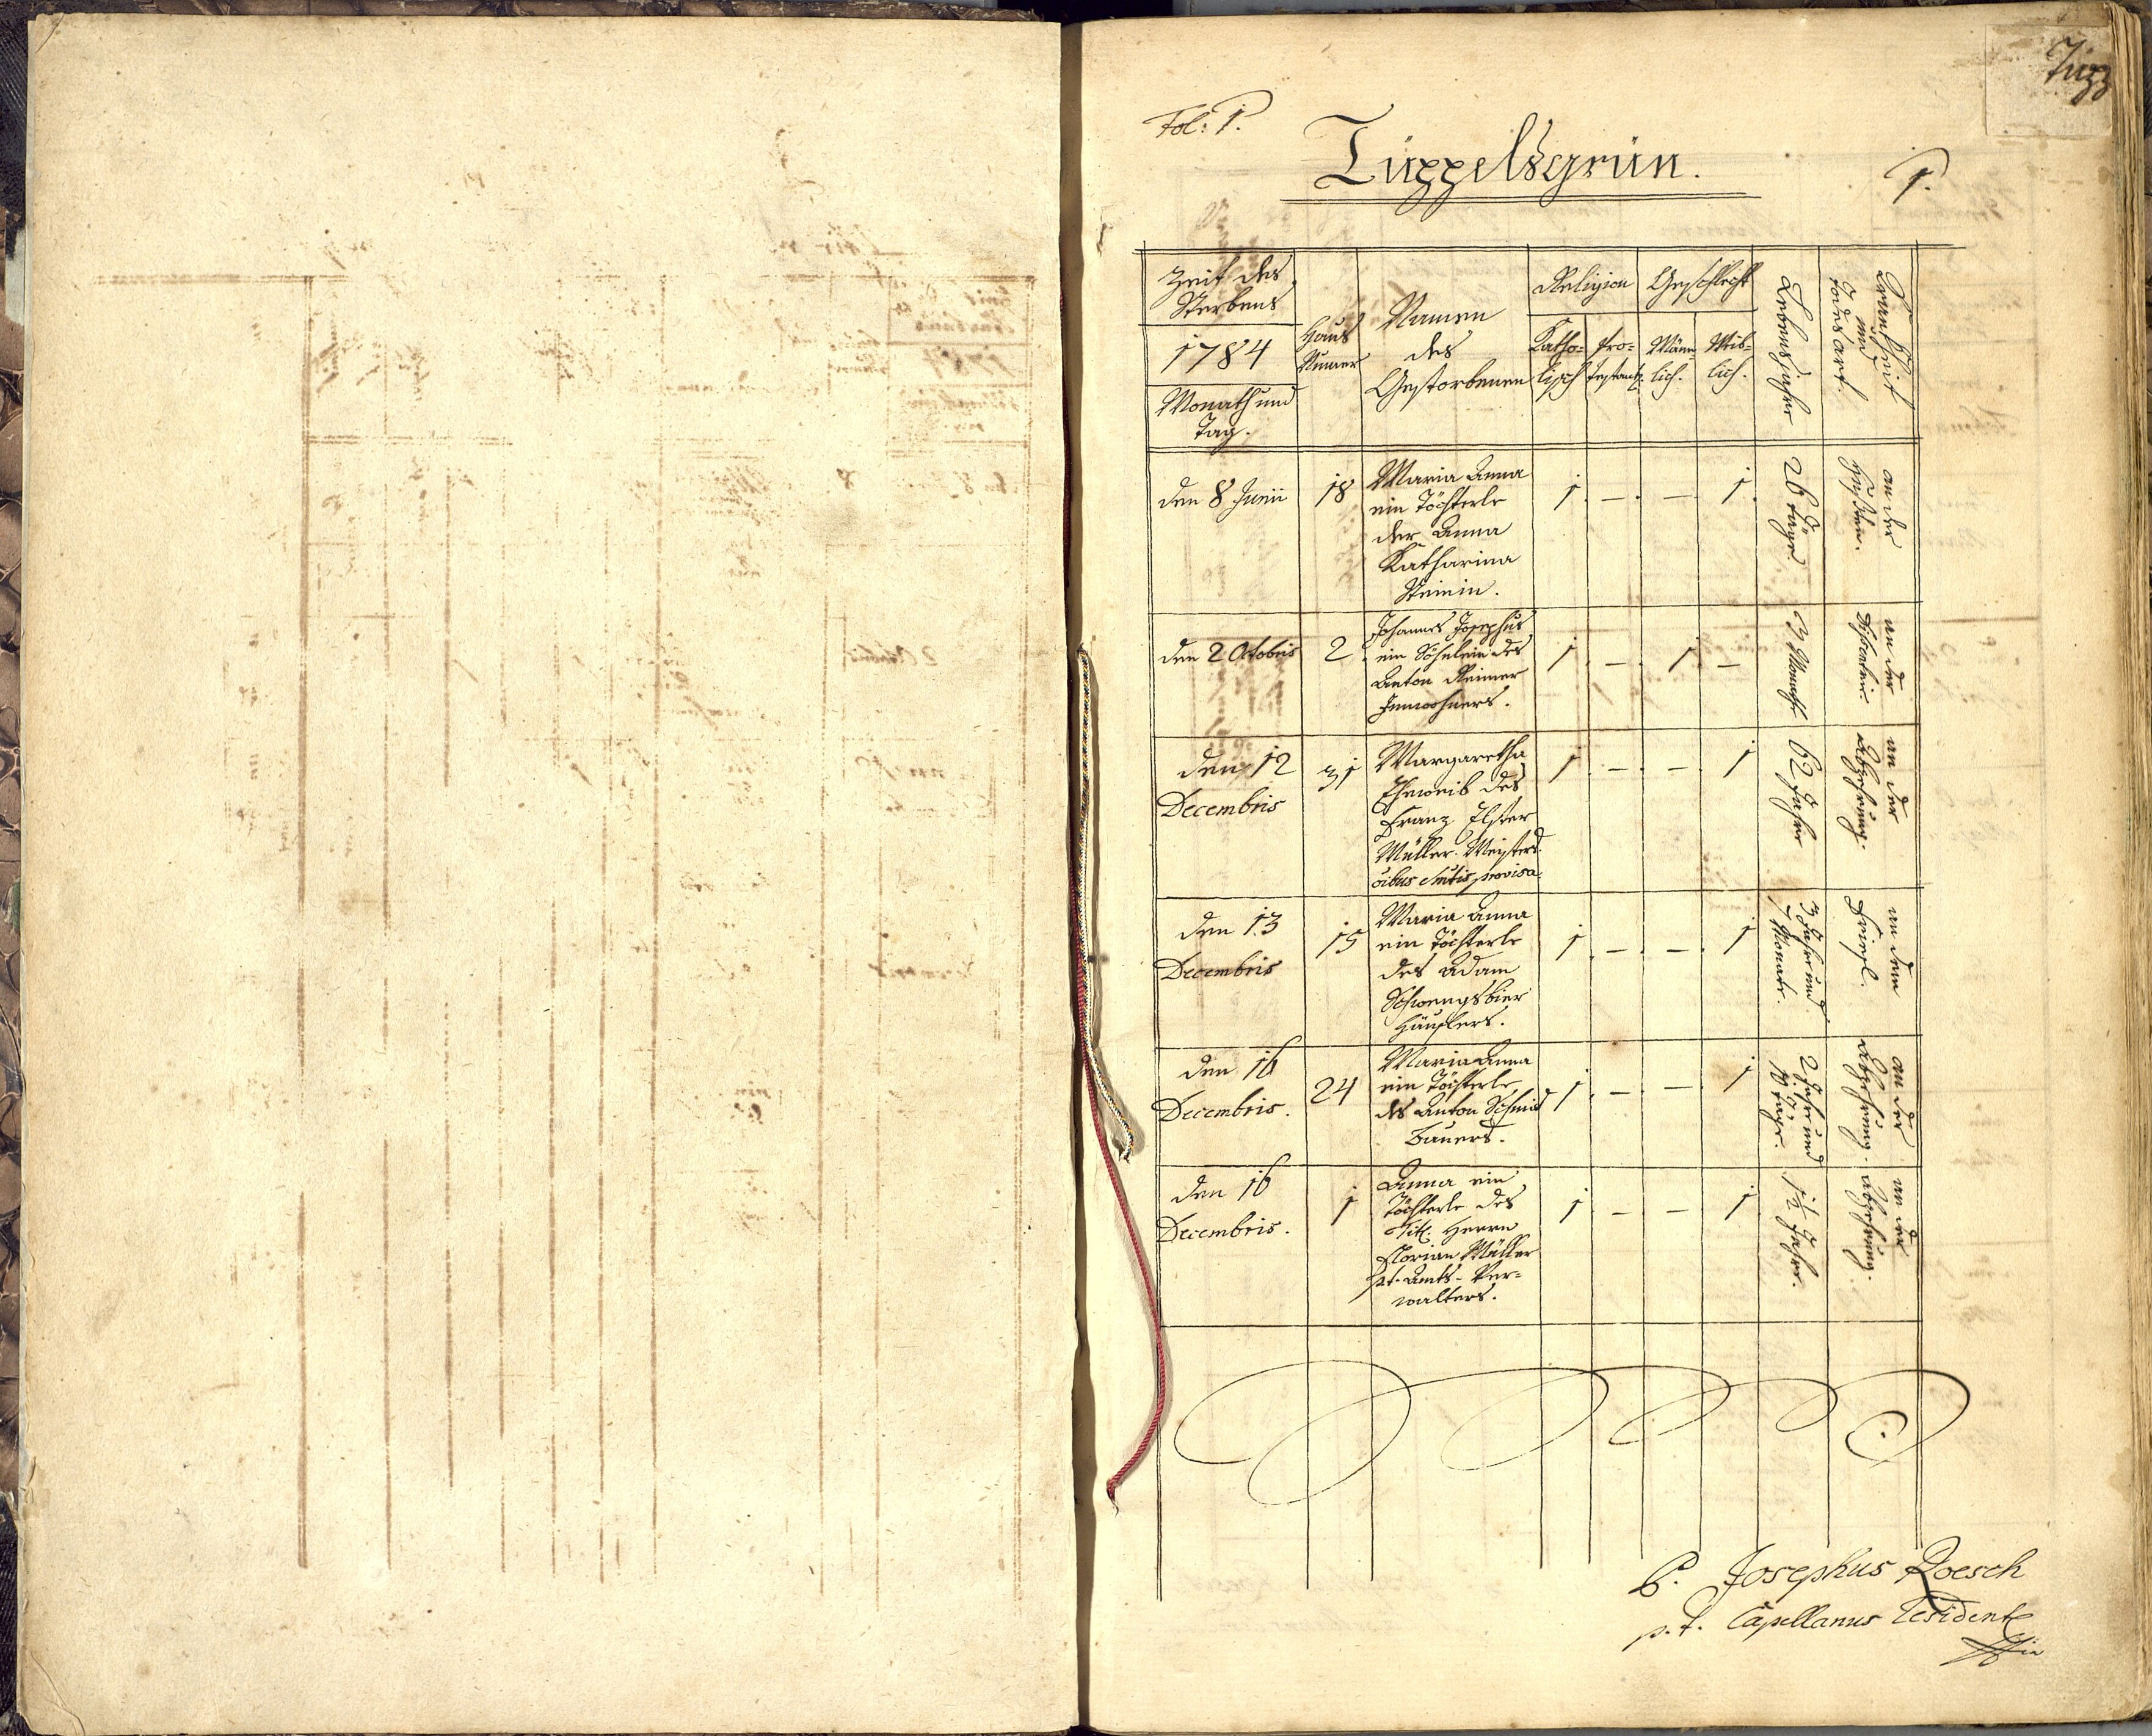 Tüpp
Fol: 1.
Tüppelsgrün.
1.
Zeit des
Sterbens
1784
Monath und
Tag.
Haus
Numer
Namen
des
Gestorbenen
Religion
Katho=
lisch
Pro=
testant.
Geschlecht
Män̄=
lich.
Weib=
lich.
Lebensjahre
Krankheit
und
Todesart.
den 8 Junii
18
Maria Anna
ein Töchterle
der Anna
Katharina
1
—
—
1
26 Täge
an der
den 2 Octobris
2
Johannes Josephus
ein Söhnlein des
Anton Reimer
Innwohners.
1
—
1
—
3 Monath
an der
den 12
Decembris
31
Margaretha
Eheweib des
Franz Elster
Müller-Meisters
oibus Smtis provisa.
1
—
—
1
62 Jahre
an der
Abzehrung.
den 13
Decembris
15
Maria Anna
ein Töchterle
des Adam
Schwengsbier
Häuslers.
1
—
—
1
3 Jahre und
7 Monate.
an dem
den 16
Decembris.
24
Maria Anna
ein Töchterle
des Anton Schmid
Bauers.
1
—
—
1
2 Jahre und
10 Täge.
an der
Abzehrung.
den 16
Decembris.
1
Anna ein
Töchterle des
Tit. Herrn
Florian Müller
p.t. Amts-Ver=
walters.
1
—
—
1
1½ Jahre.
an der
Abzehrung.
P. Josephus Roesch
p. t. Capellanus Resident